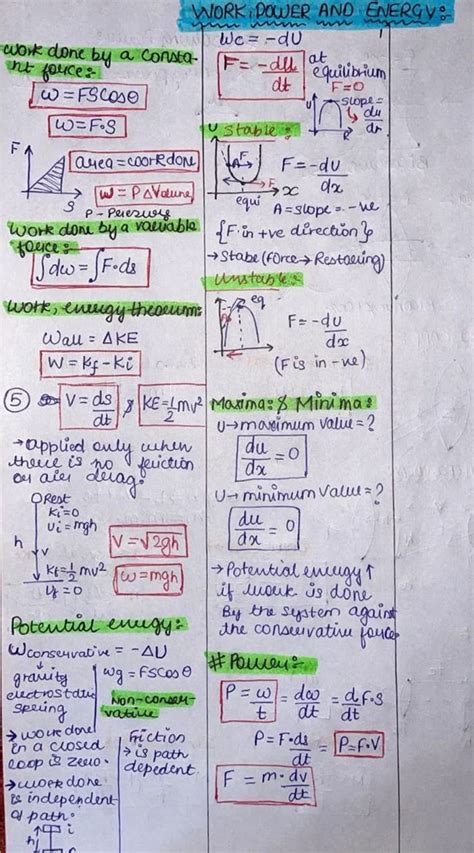 WORK, POWER AND ENERGY:
Work done by a consta-
nt force:-
W = FS COSΘ
W = F·S
F
S
area = work done
W = PΔVolume
Work done by a variable
force:
∫dw = ∫F·ds
Work, energy theorem:
Wall = ΔKE
W = Kf - Ki
⑤
V = ds/dt & KE = 1/2 mv²
→ applied only when
there is no friction
or air drag:
Rest
Ki = 0
Ui = mgh
h
v
Kf = 1/2 mv²
Uf = 0
V = √2gh
W = mgh
Potential energy:
Wconservative = -ΔU
gravity
electrostatic
spring
→ work done
in a closed
loop is zero.
→ work done
is independent
of path:
i
h
Wg = FS COSΘ
Non-conser-
vative
Friction
→ is path
depedent.
Wc = -dU
F = -dU/dt
at
equilibrium
F = 0
U
slope =
du/dr
R
Stable:
U
F
A
F
x
equi
F = -dU/dx
A = slope = -ve
{F in +ve direction}
→ Stabe (force → Restoring)
Unstable:
eq
F = -dU/dx
(F is in -ve)
Maxima: & Minima:
U → maximum value = ?
du/dx = 0
U → minimum value = ?
du/dx = 0
→ Potential energy ↑
if work is done
By the system against
the conservative force
# Power:-
P = W/t = dw/dt = d/dt F·S
P = F·ds/dt = P = F·V
F = m·dv/dt